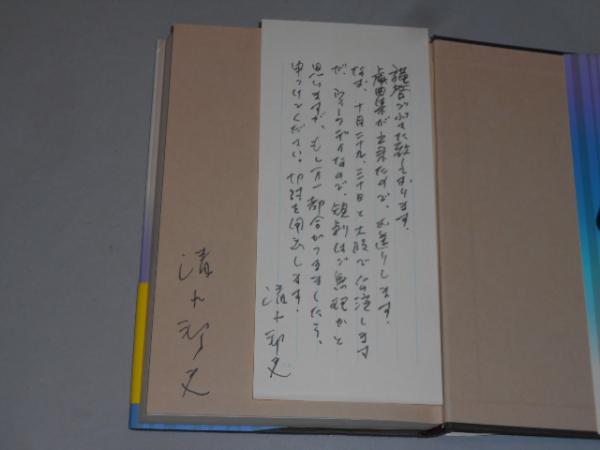 謹啓 ごぶさた致しおります。
戯曲集が出来たので、お送りします。
なお、十月二十九、三十日と大阪で公演します
が、ウィークデイなので、観劇はご無理かと
思いますが、もし万一都合がつきましたら、
申しつけください。切符を用意します。
清水邦夫
清水邦夫